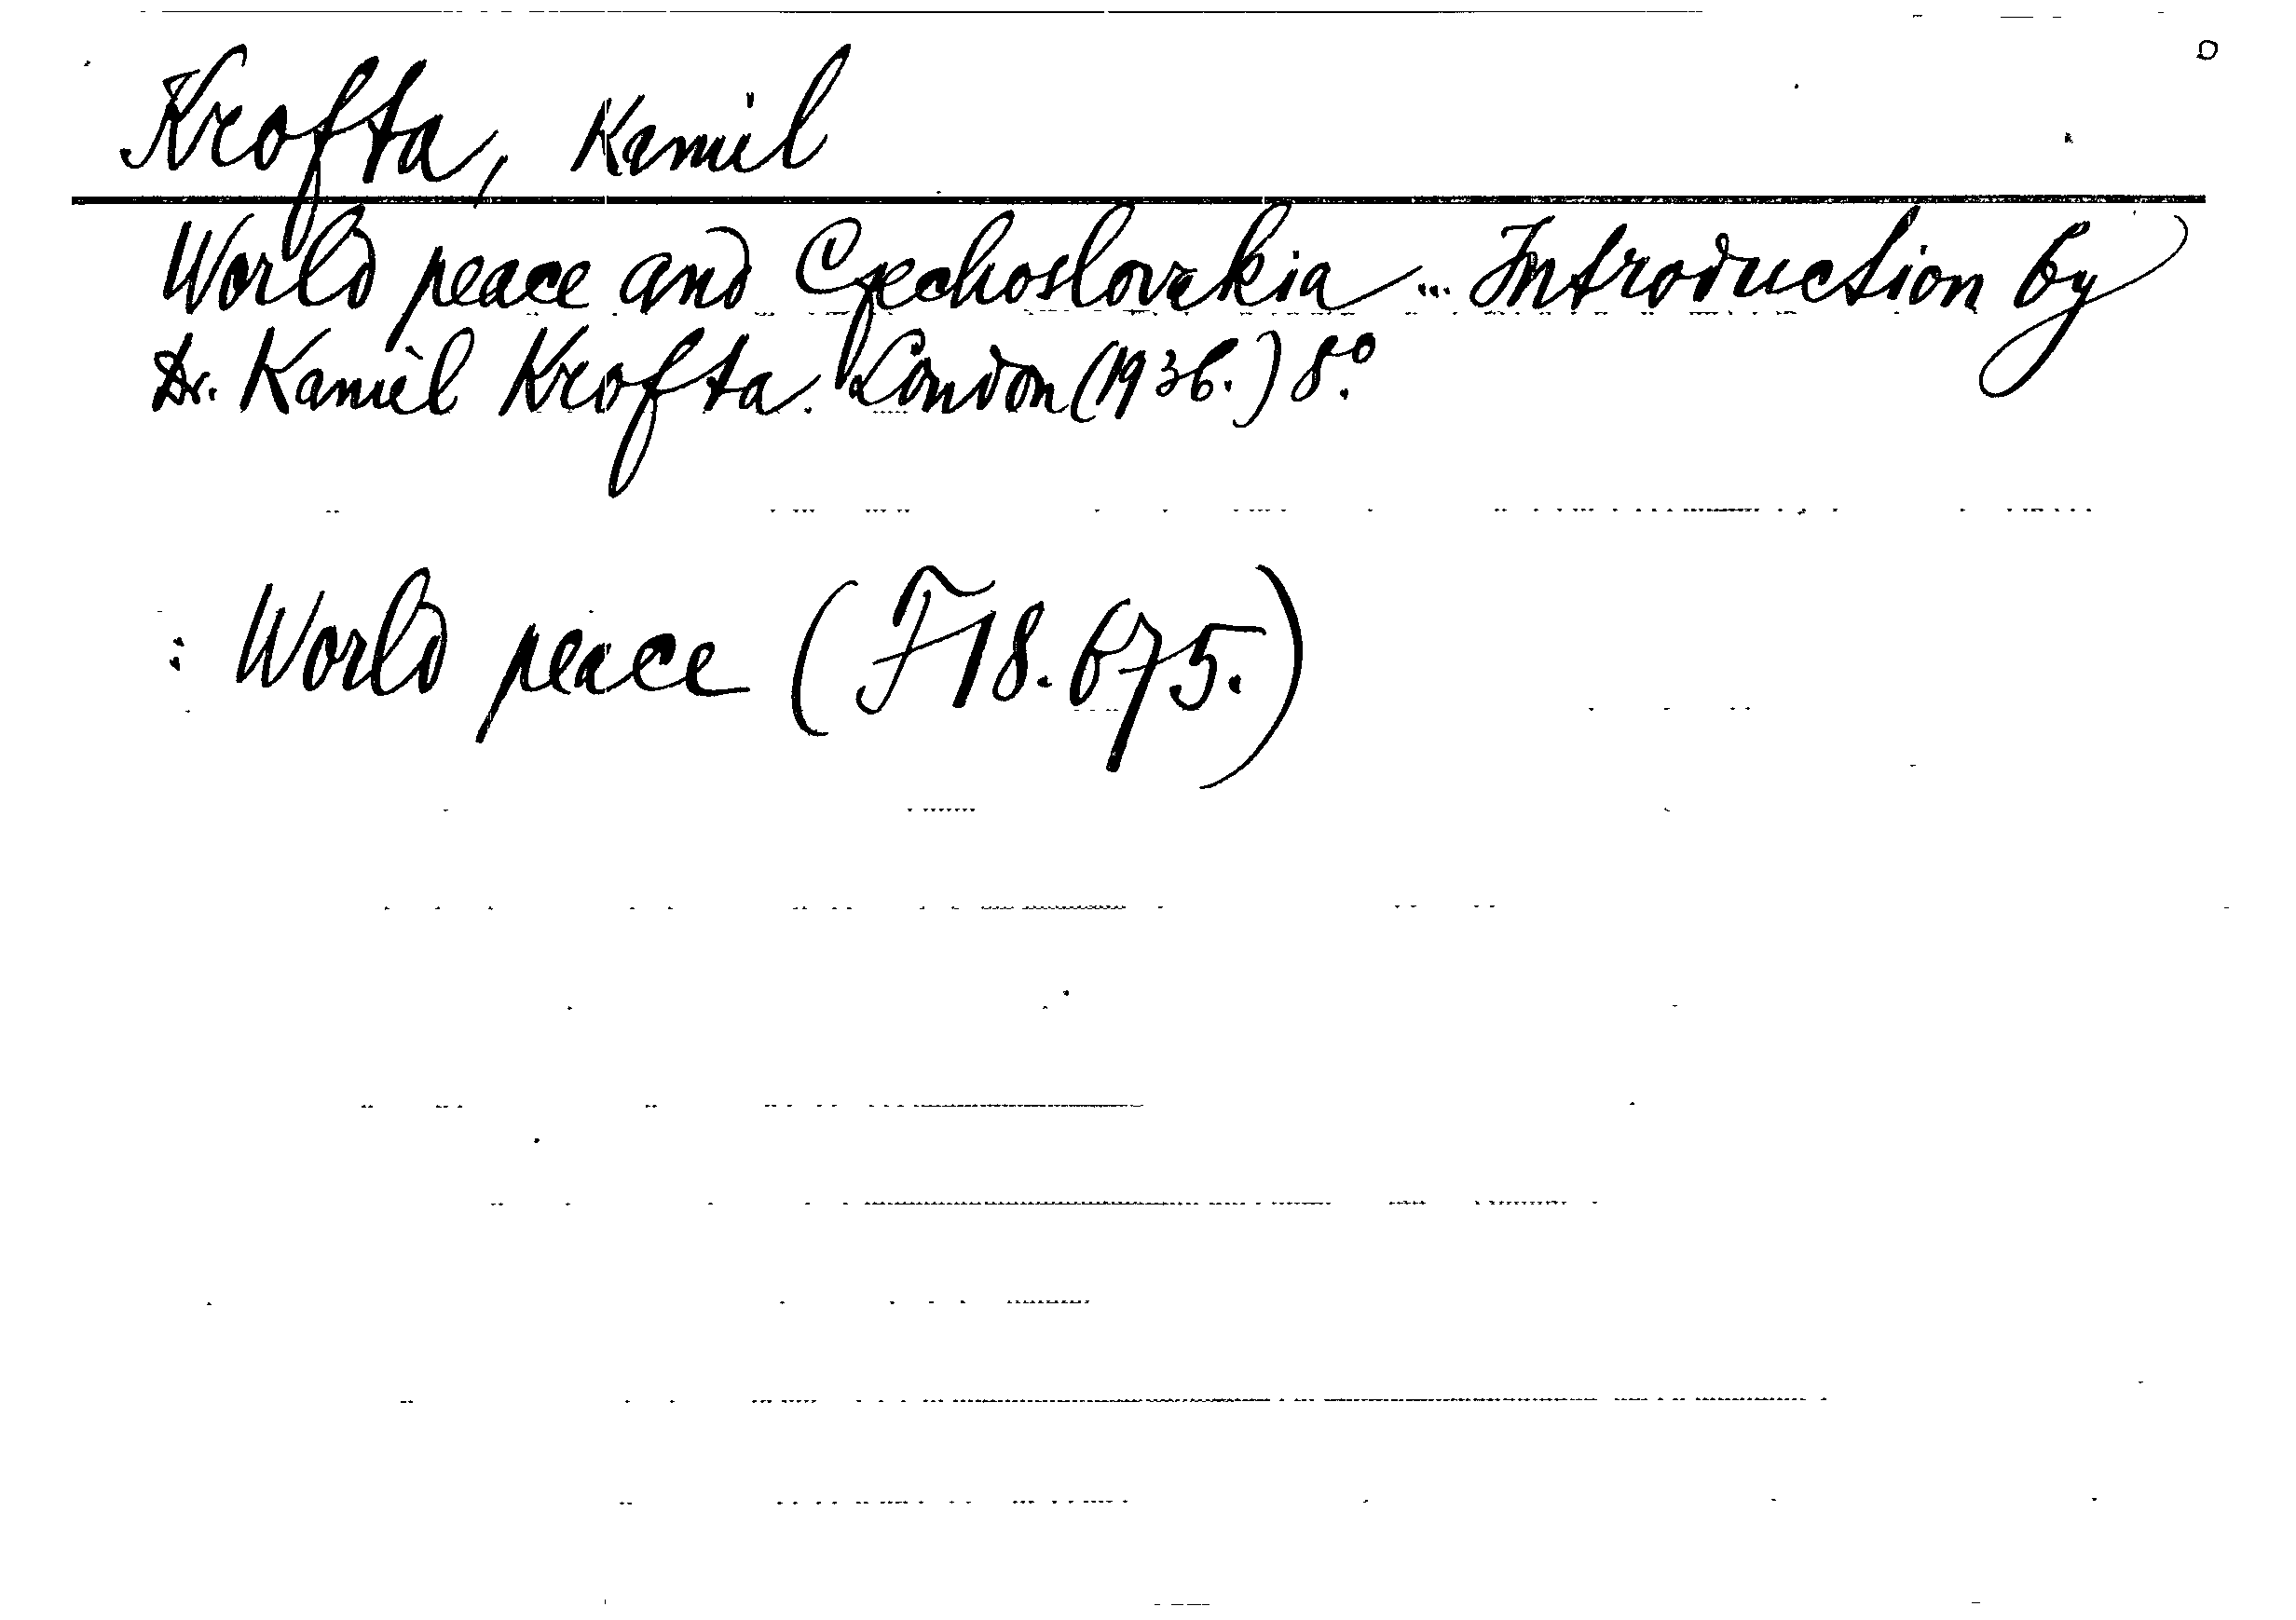 Krofta, Kamil
World peace and Czechoslovakia... Introduction by
Dr. Kamil Krofta. London (1936.) 8.°
: World peace (F18.675.)